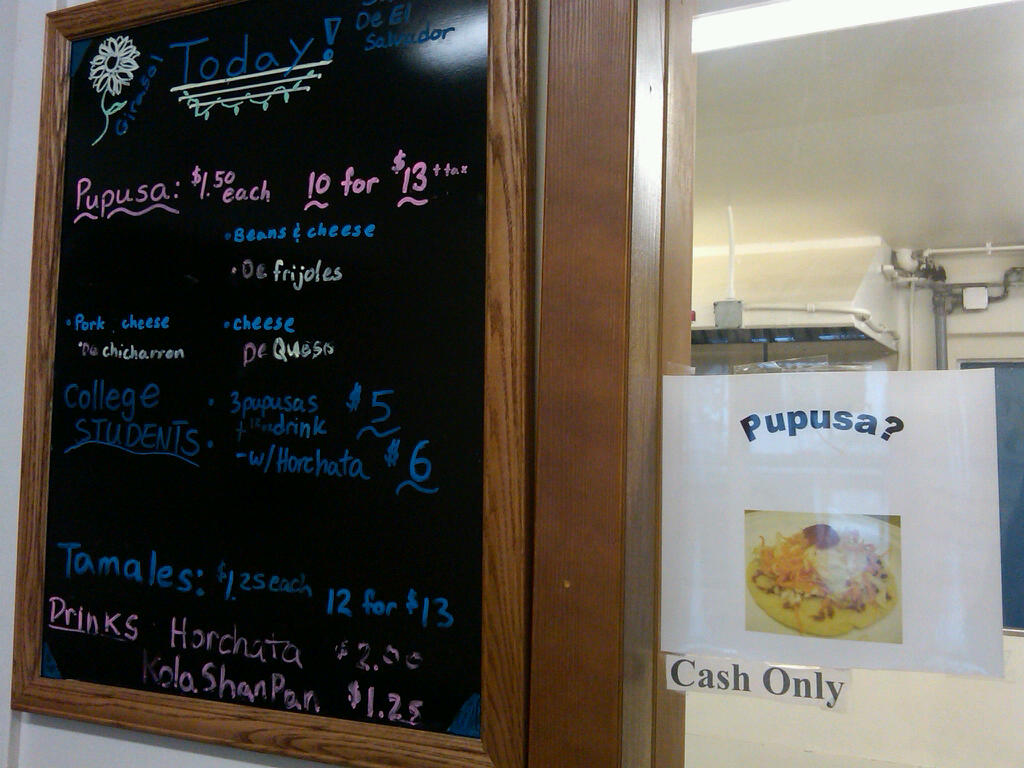 De El
Salvador
Girasol
Today!
Pupusa: $1.50 each 10 for $13 + tax
• Beans & cheese
• De frijoles
• Pork cheese
• De chicharron
• cheese
De Queso
College
STUDENTS
• 3 pupusas $5
+ drink
- w/ Horchata $6
Tamales: $1.25 each 12 for $13
Drinks Horchata $2.00
Kola ShanPan $1.25
Pupusa?
Cash Only